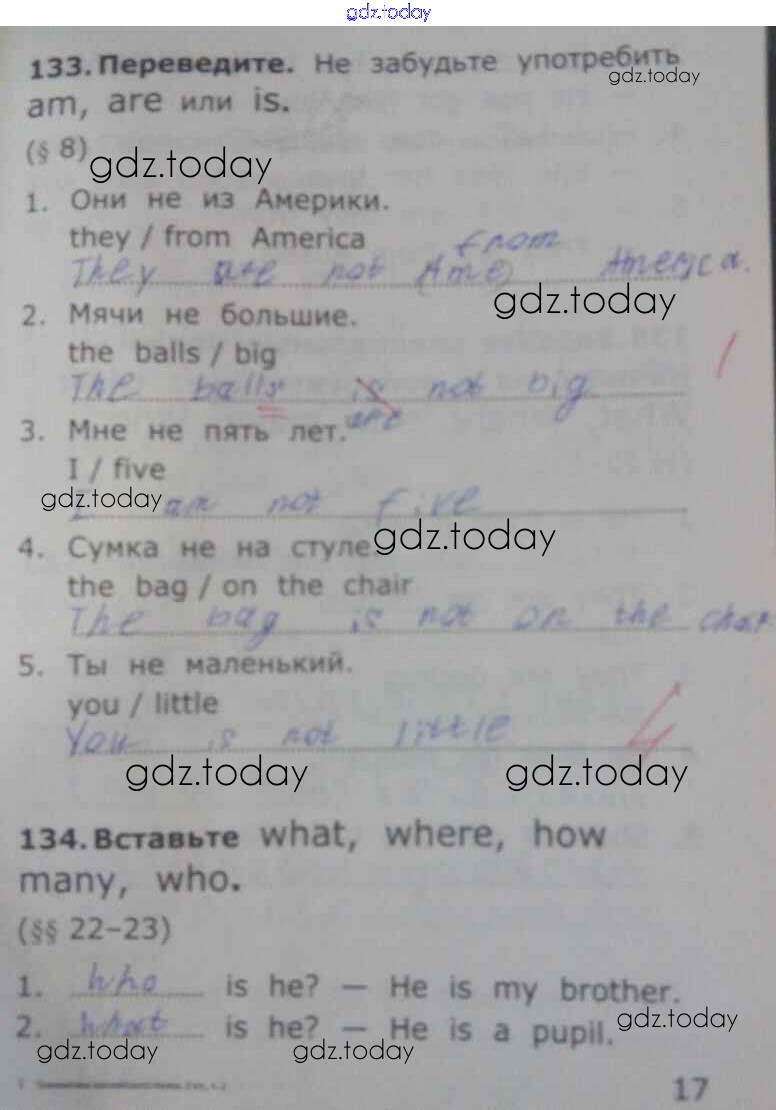 gdz.today
133. Переведите. Не забудьте употребить
gdz.today
am, are или is.
(§ 8)
gdz.today
1. Они не из Америки.
they / from America
from
They are not (Ame) America.
gdz.today
2. Мячи не большие.
the balls / big
The balls is not big
are
3. Мне не пять лет.
I / five
gdz.today
I am not five
4. Сумка не на стуле.
gdz.today
the bag / on the chair
The bag is not on the chair
5. Ты не маленький.
you / little
You is not little
4
gdz.today gdz.today
134. Вставьте what, where, how
many, who.
(§§ 22–23)
1. who is he? — He is my brother.
2. what is he? — He is a pupil.
gdz.today
gdz.today gdz.today
17